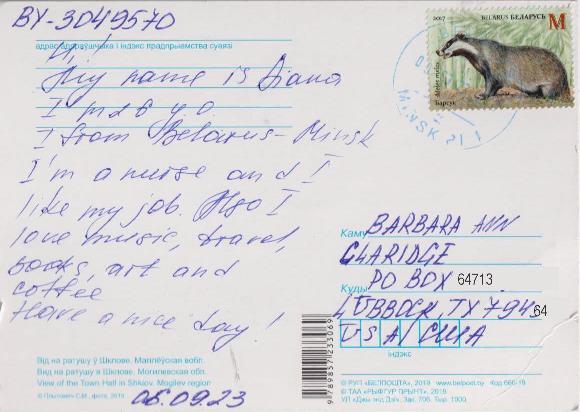 BY-3049570
адрас адпраўшчыка і індэкс прадпрыемства сувязі
Hi!
My name is Diana
I'm 26 y o
I from Belarus-Minsk
I'm a nurse and I
like my job. Also I
love music, travel,
books, art and
coffee
Have a nice day!
Від на ратушу ў Шклове. Магілёўская вобл.
Вид на ратушу в Шклове. Могилевская обл.
View of the Town Hall in Shklov. Mogilev region
© Плыткевіч С.М., фота, 2019
06.09.23
9789857233069
2017 BELARUS БЕЛАРУСЬ M
Meles meles
Барсук
MINSK
Каму BARBARA ANN
CLARIDGE
Куды PO BOX 64713
LUBBOCK, TX 794 64
USA/США
індэкс
© РУП «БЕЛПОШТА», 2019 www.belpost.by Код 666-19
© ТАА «РЫФТУР ПРЫНТ», 2019